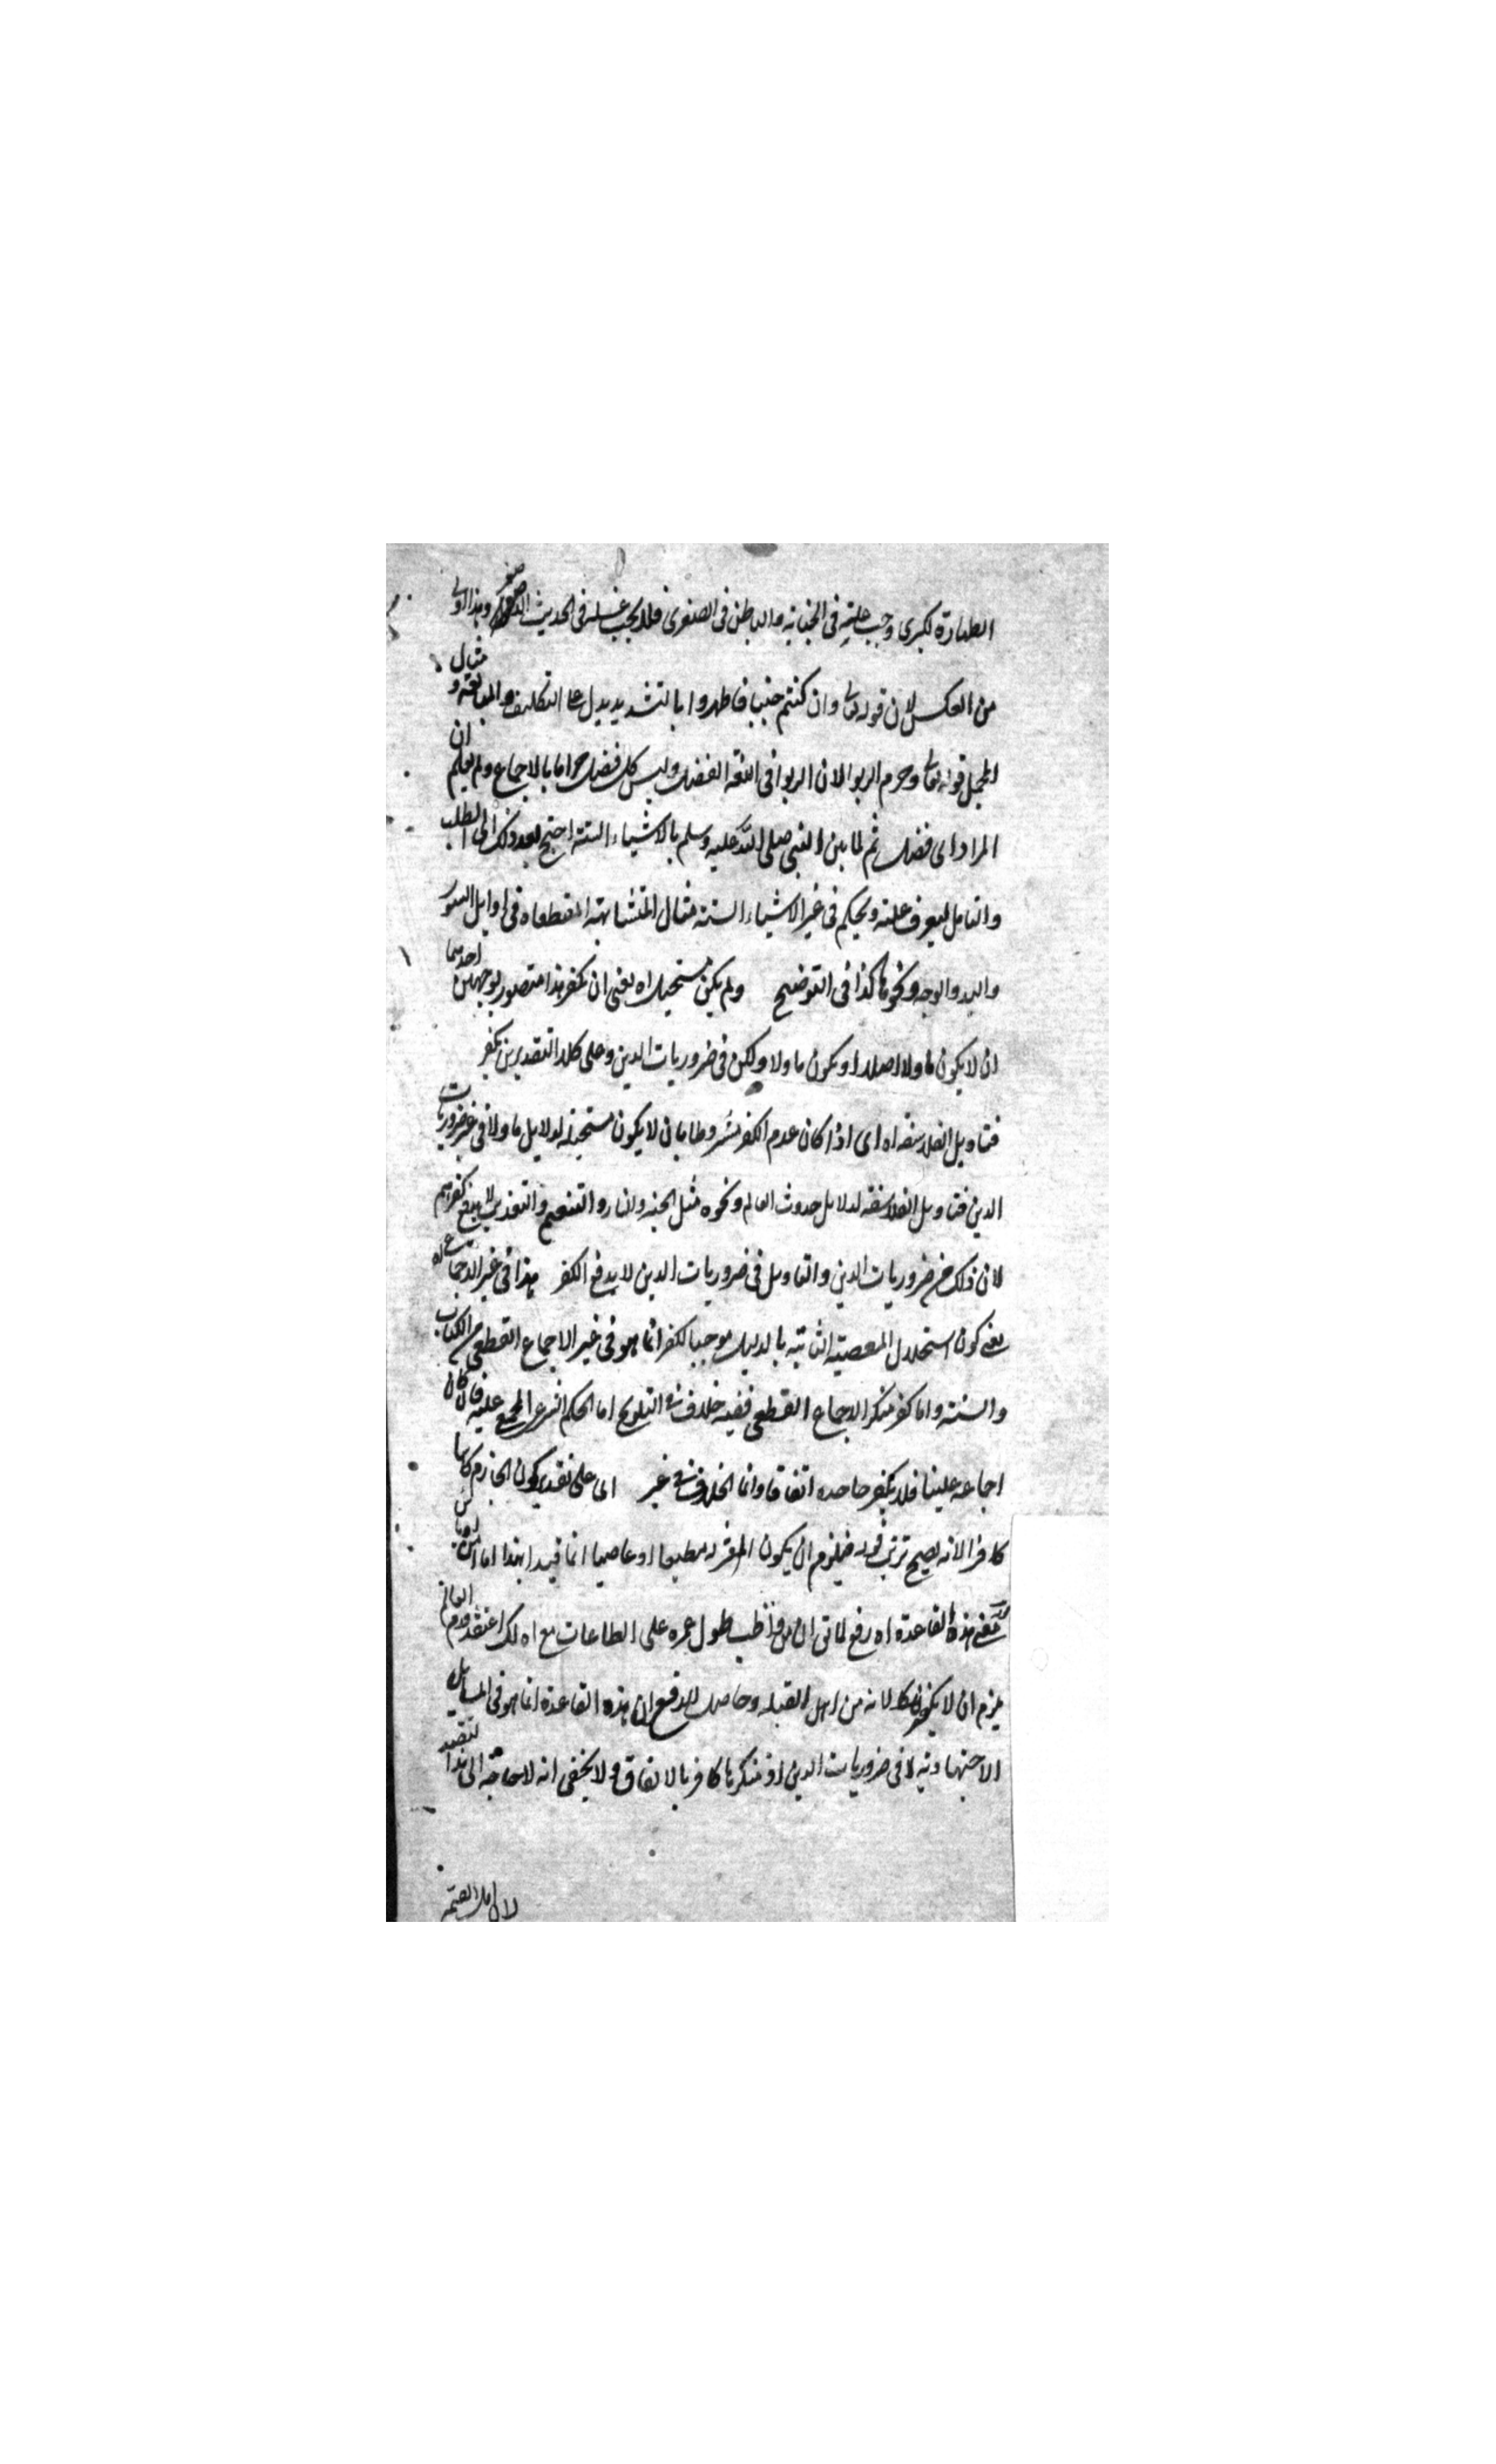 الطهارة الكبرى وجب غسله في الجنابة والباطن في الصغرى فلا يجب غسله في الحدث الاصغر وهذا اولى
من العكس لان قوله تعالى وان كنتم جنبا فاطهروا بالتشديد يدل على التكلف والمبالغة ومثال
المجمل قوله تعالى وحرم الربوا لان الربوا في اللغة الفضل وليس كل فضل حراما بالاجماع ولم يعلم ان
المراد اى فضل ثم لما بين النبي صلى الله عليه وسلم بالاشياء الستة احتيج بعد ذلك الى الطلب
والتامل ليعرف علته ويحكم في غير الاشياء الستة مثال المتشابه المقطعاة في اوايل السور
واليد والوجه ونحوها كذا في التوضيح ولم يكن مستحيلا اه يعنى ان كفر هذا متصور بوجهين احدهما
ان لا يكون ماولا اصلا او يكون ماولا ولكن في ضروريات الدين وعلى كلا التقديرين يكفر
فتاويل الفلاسفة اه اى اذا كان عدم الكفر مشروطا بان لا يكون مستحيله لدلايل ماولا في غير ضروريات
الدين فتاويل الفلاسفة لدلايل حدوث العالم ونحوه مثل الجنة والنار والتنعيم والتعذيب لا يدفع كفرهم
لان ذلك من ضروريات الدين والتاويل في ضروريات الدين لا يدفع الكفر هذا في غير الاجماع اه
يعنى كون استحلال المعصية الثابتة بالدليل موجبا للكفر انما هو في غير الاجماع القطعى من الكتاب
والسنة واما كفر منكر الاجماع القطعى ففيه خلاف في التلويح اما الحكم الشرعى المجمع عليه فان كان
اجماعه علينا فلا يكفر جاحده اتفاقا وانما الخلاف في غير اى على تقدير كون الجازم كاها
كافرا لانه يصح ترتب قوله فيلزم ان يكون المقر له مطيعا او عاصيا انما قيد بهذا اما
معنى هذه القاعدة اه رفع لما اتى ان من واظب طول عمره على الطاعات مع اه لك اعتقد قدم العالم
يلزم ان لا يكفر لانه من اهل القبلة وحاصل الدفع ان هذه القاعدة انما هو في المسايل
الاجتهادية لا في ضروريات الدين اذ منكرها كافر بالاتفاق ولا يخفى انه لا حاجة الى هذا التقييد
لان اهل القبلة